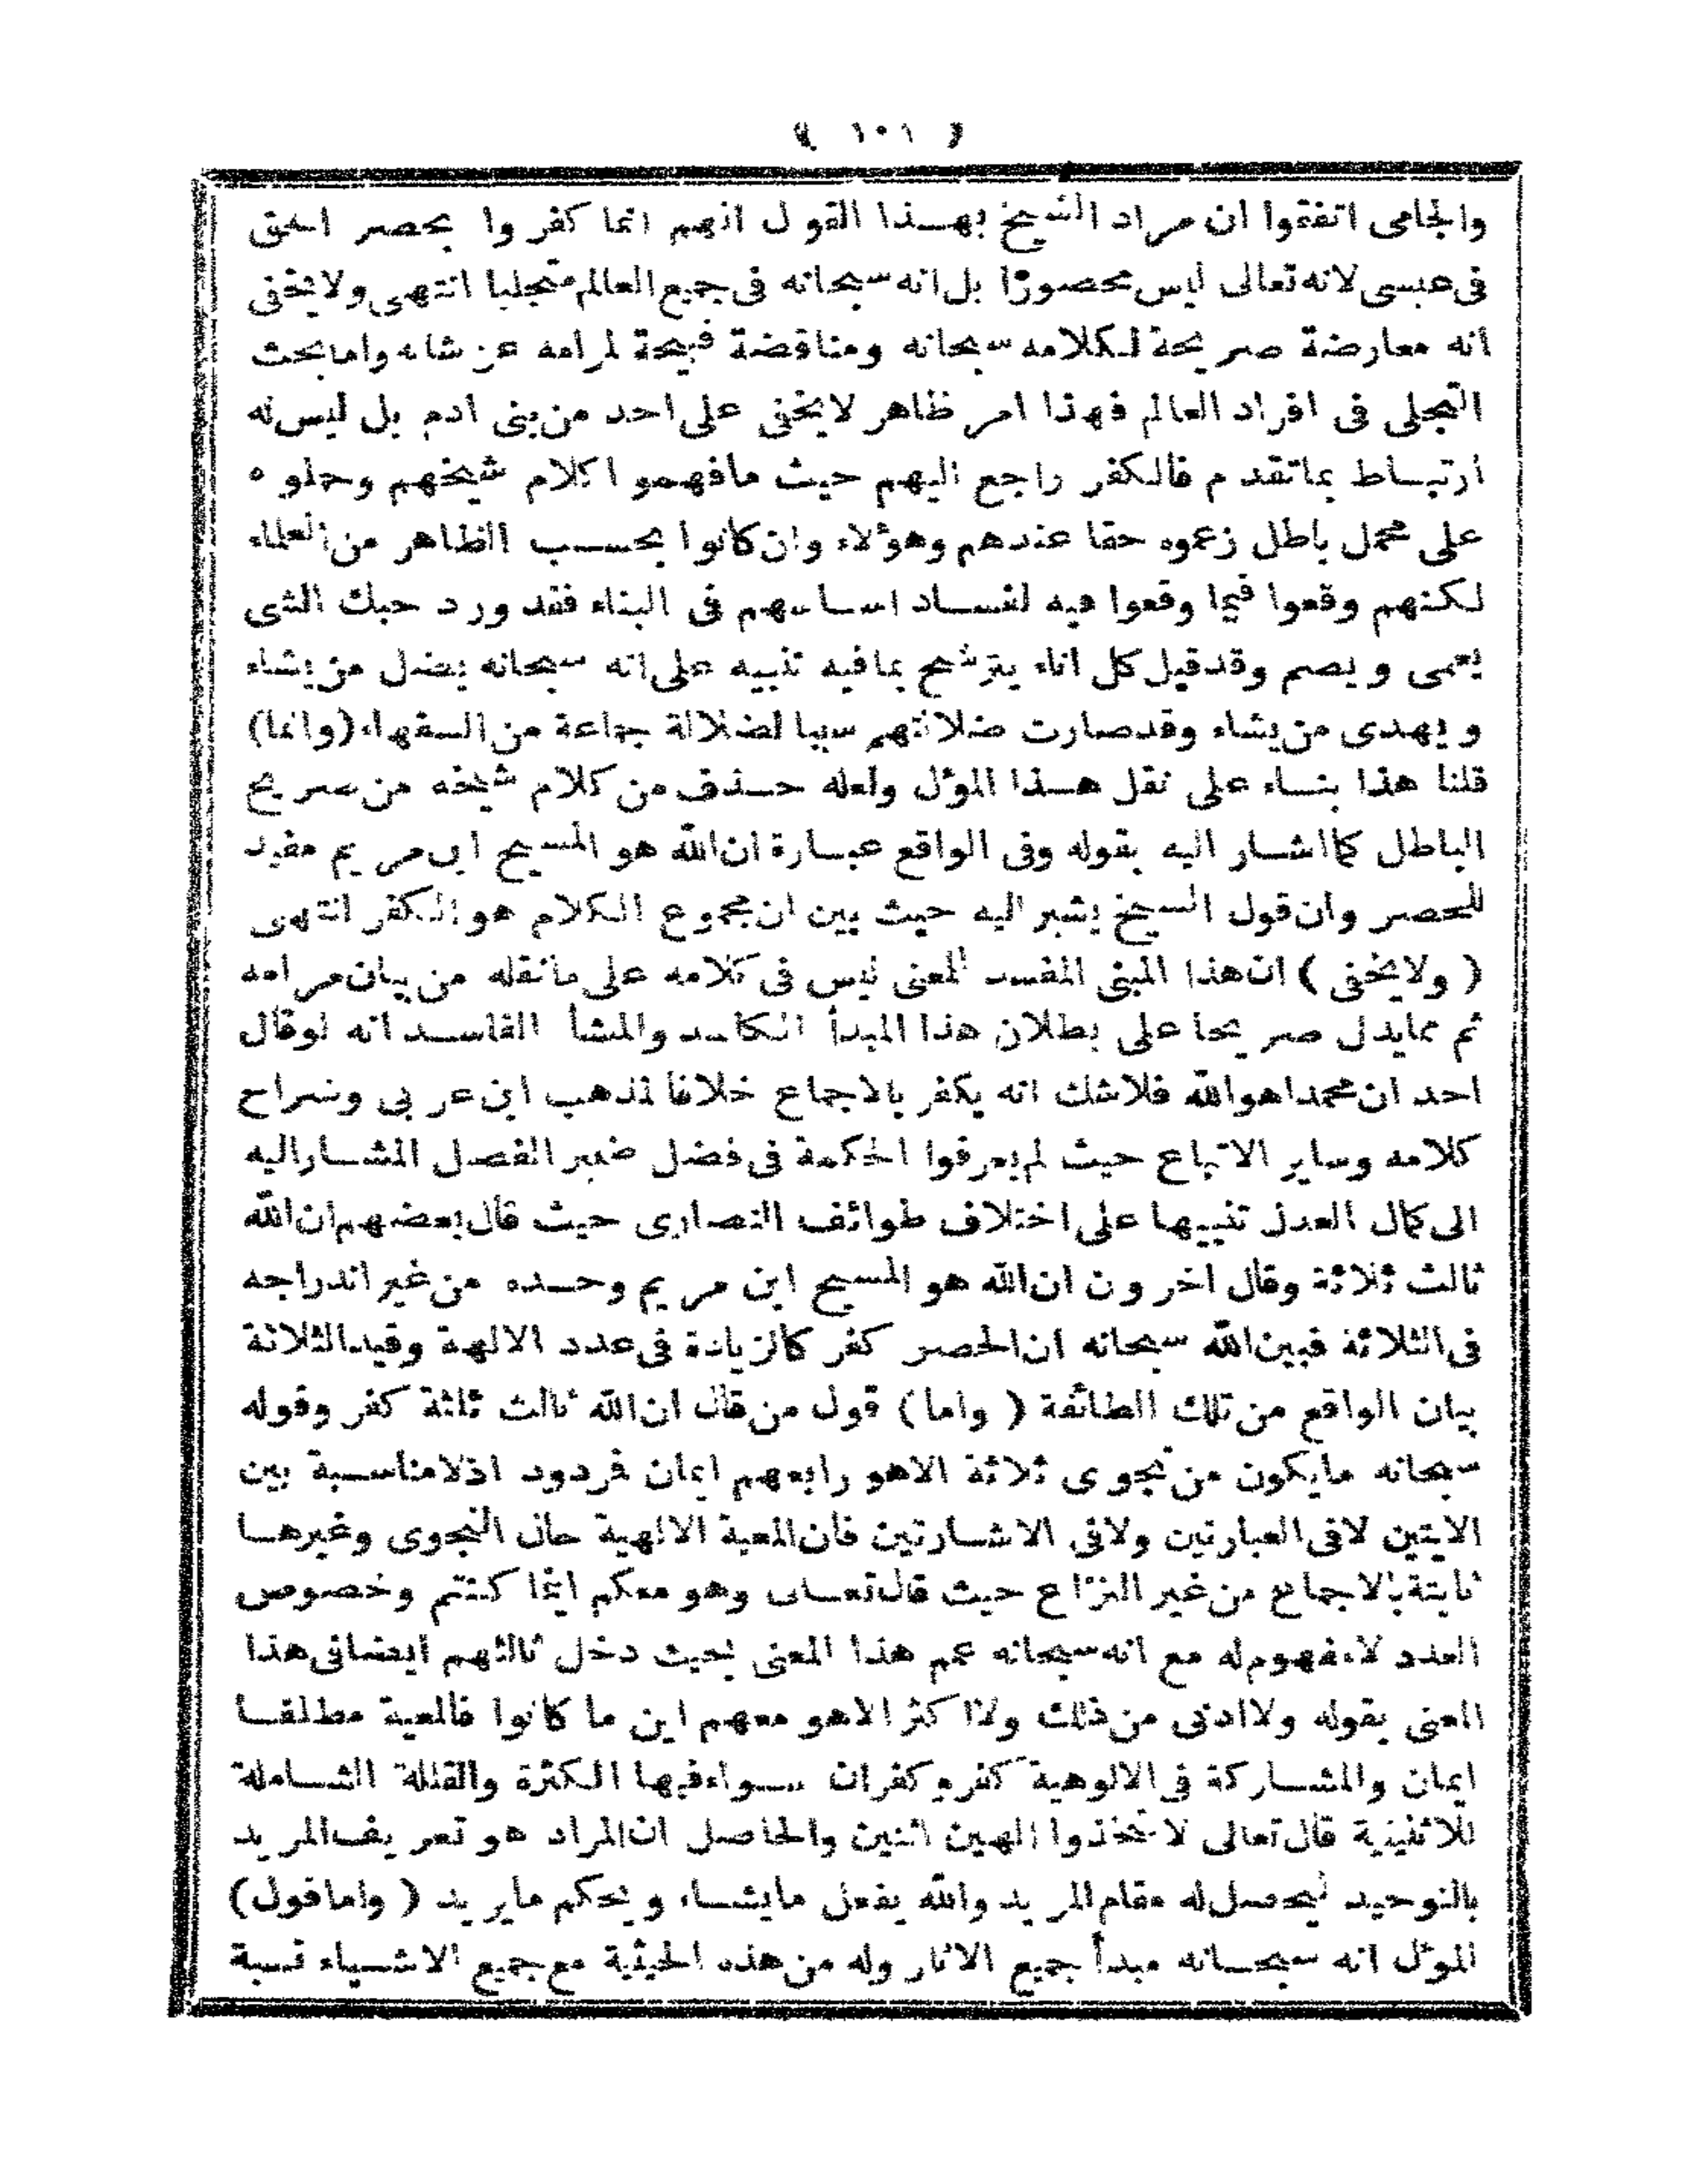 ﴿ ١٠١ ﴾
والجامى اتفقوا ان مراد الشيخ بهذا القول انهم انما كفروا بحصر الحق
فى عيسى لانه تعالى ليس محصورا بل انه سبحانه فى جميع العالم متجليا انتهى ولا يخفى
انه معارضة صريحة لكلامه سبحانه ومناقضة قبيحة لمرامه عن شانه واما بحث
التجلى فى افراد العالم فهذا امر ظاهر لا يخفى على احد من بنى ادم بل ليس له
ارتباط بما تقدم فالكفر راجع اليهم حيث ما فهموا كلام شيخهم وحملوه
على محمل باطل زعموه حقا عندهم وهؤلاء وان كانوا بحسب الظاهر من العلماء
لكنهم وقعوا فيما وقعوا فيه لفساد اساسهم فى البناء فقد ورد حبك الشى
يعمى ويصم وقد قيل كل اناء يترشح بما فيه تنبيه على انه سبحانه يضل من يشاء
ويهدى من يشاء وقد صارت ضلالتهم سببا لضلالة جماعة من السفهاء (وانما)
قلنا هذا بناء على نقل هذا المؤل ولعله حذف من كلام شيخه من صريح
الباطل كما اشار اليه بقوله وفى الواقع عبارة ان الله هو المسيح ابن مريم مفيد
للحصر وان قول الشيخ يشير اليه حيث بين ان مجموع الكلام هو الكفر انتهى
(ولا يخفى) ان هذا المبنى المفسد للمعنى ليس فى كلامه على ما نقله من بيان مرامه
ثم مما يدل صريحا على بطلان هذا المبدأ الكاسد والمنشأ الفاسد انه لو قال
احد ان محمدا هو الله فلا شك انه يكفر بالاجماع خلافا لمذهب ابن عربى وشراح
كلامه وساير الاتباع حيث لم يعرفوا الحكمة فى فضل ضمير الفصل المشار اليه
الى كمال العدل تنبيها على اختلاف طوائف النصارى حيث قال بعضهم ان الله
ثالث ثلاثة وقال اخرون ان الله هو المسيح ابن مريم وحده من غير اندراجه
فى الثلاثة فبين الله سبحانه ان الحصر كفر كالزيادة فى عدد الالهة وقيد الثلاثة
بيان الواقع من تلك الطائفة (واما) قول من قال ان الله ثالث ثلثة كفر وقوله
سبحانه ما يكون من نجوى ثلاثة الا هو رابعهم ايمان فمردود اذ لا مناسبة بين
الايتين لا فى العبارتين ولا فى الاشارتين فان المعية الالهية حال النجوى وغيرها
ثابتة بالاجماع من غير النزاع حيث قال تعالى وهو معكم اينما كنتم وخصوص
العدد لا مفهوم له مع انه سبحانه عمم هذا المعنى بحيث دخل ثالثهم ايضا فى هذا
المعنى بقوله ولا ادنى من ذلك ولا اكثر الا هو معهم اين ما كانوا فالمعية مطلقا
ايمان والمشاركة فى الالوهية كفر وكفران سواء فيها الكثرة والقلة الشاملة
للاثنينية قال تعالى لا تتخذوا الهين اثنين والحاصل ان المراد هو تعريف المريد
بالتوحيد ليحصل له مقام المريد والله يفعل ما يشاء ويحكم ما يريد (واما قول)
المؤل انه سبحانه مبدأ جميع الاثار وله من هذه الحيثية مع جميع الاشياء نسبة